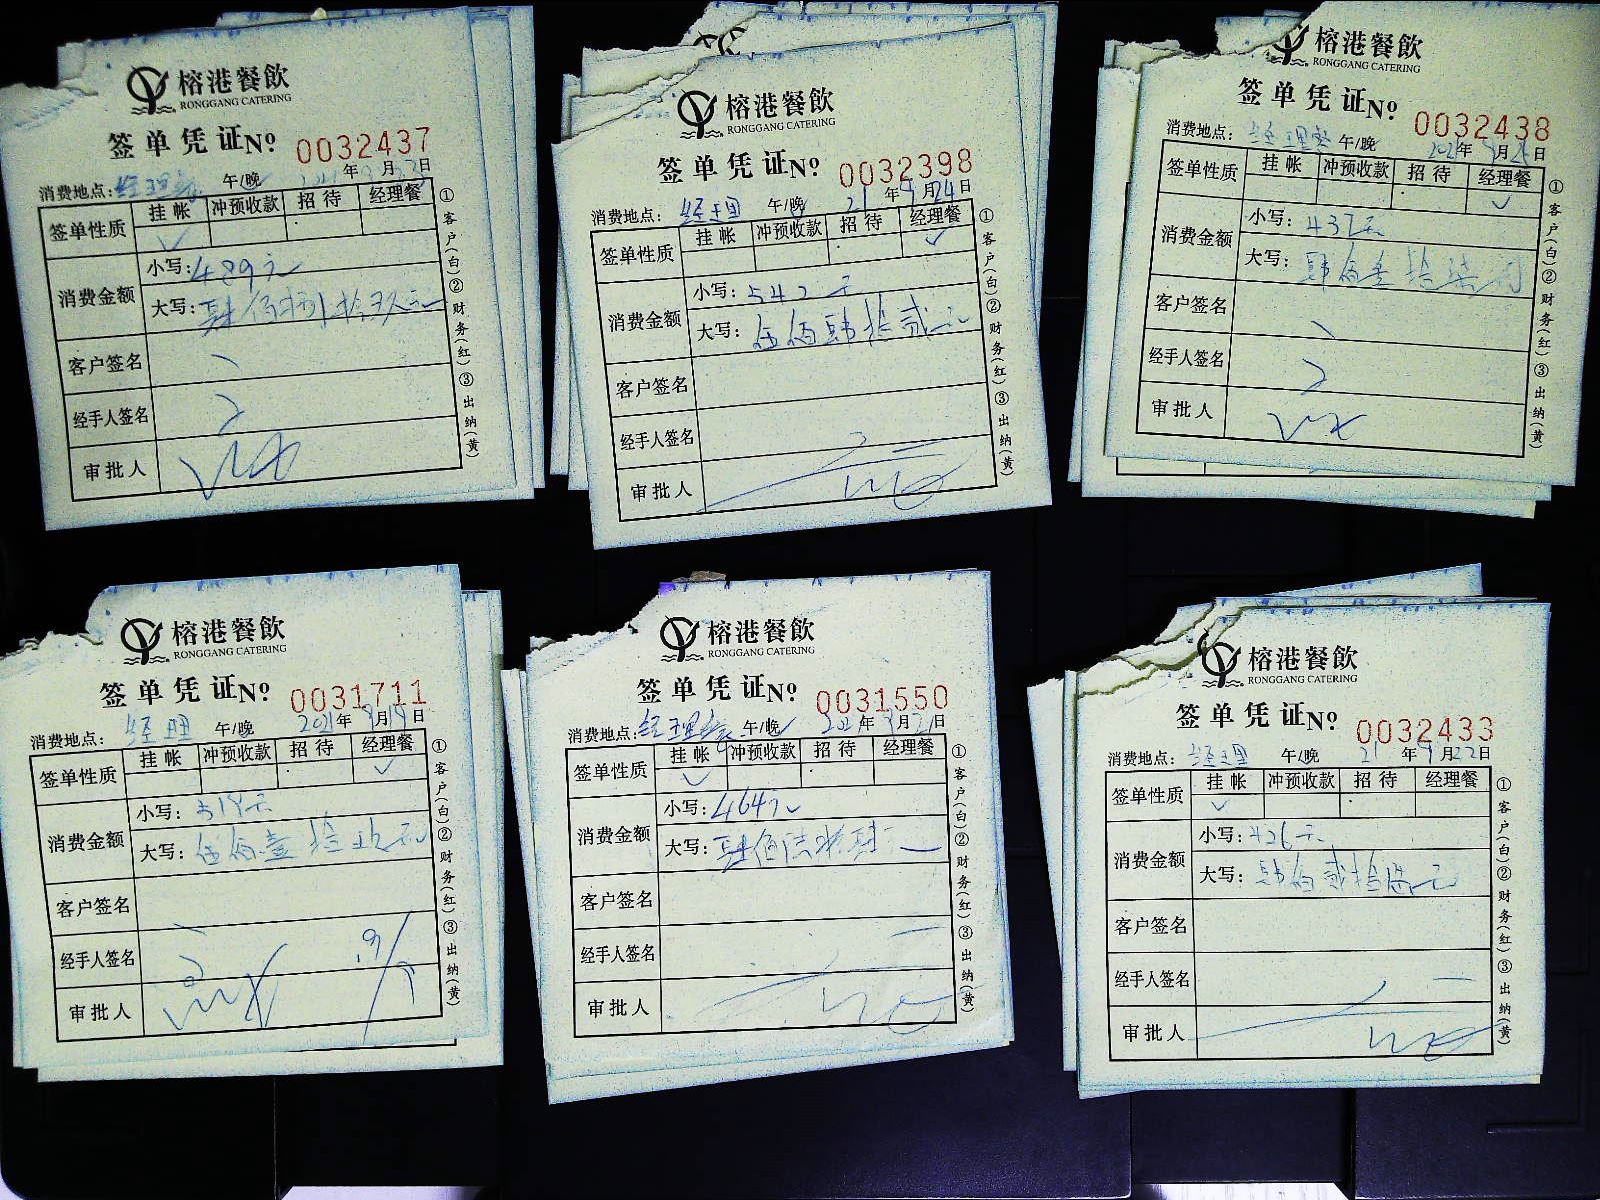 榕港餐飲
RONGGANG CATERING
签单凭证№ 0032437
消费地点: 经理餐 午/晚 年 月 日
签单性质 挂帐 冲预收款 招待 经理餐
消费金额 小写: 489元
大写: 肆佰捌拾玖元
客户签名
经手人签名
审批人
①客户(白)②财务(红)③出纳(黄)
榕港餐飲
RONGGANG CATERING
签单凭证№ 0032398
消费地点: 经理 午/晚 21年9月24日
签单性质 挂帐 冲预收款 招待 经理餐
消费金额 小写: 542元
大写: 伍佰肆拾贰元
客户签名
经手人签名
审批人
①客户(白)②财务(红)③出纳(黄)
榕港餐飲
RONGGANG CATERING
签单凭证№ 0032438
消费地点: 经理餐 午/晚 2021年9月25日
签单性质 挂帐 冲预收款 招待 经理餐
消费金额 小写: 437元
大写: 肆佰叁拾柒元
客户签名
经手人签名
审批人
①客户(白)②财务(红)③出纳(黄)
榕港餐飲
RONGGANG CATERING
签单凭证№ 0031711
消费地点: 经理 午/晚 2021年9月19日
签单性质 挂帐 冲预收款 招待 经理餐
消费金额 小写: 519元
大写: 伍佰壹拾玖元
客户签名
经手人签名
审批人
①客户(白)②财务(红)③出纳(黄)
榕港餐飲
RONGGANG CATERING
签单凭证№ 0031550
消费地点: 经理餐 午/晚 2021年9月21日
签单性质 挂帐 冲预收款 招待 经理餐
消费金额 小写: 464元
大写: 肆佰陆拾肆元
客户签名
经手人签名
审批人
①客户(白)②财务(红)③出纳(黄)
榕港餐飲
RONGGANG CATERING
签单凭证№ 0032433
消费地点: 经理 午/晚 21年9月22日
签单性质 挂帐 冲预收款 招待 经理餐
消费金额 小写: 426元
大写: 肆佰贰拾陆元
客户签名
经手人签名
审批人
①客户(白)②财务(红)③出纳(黄)